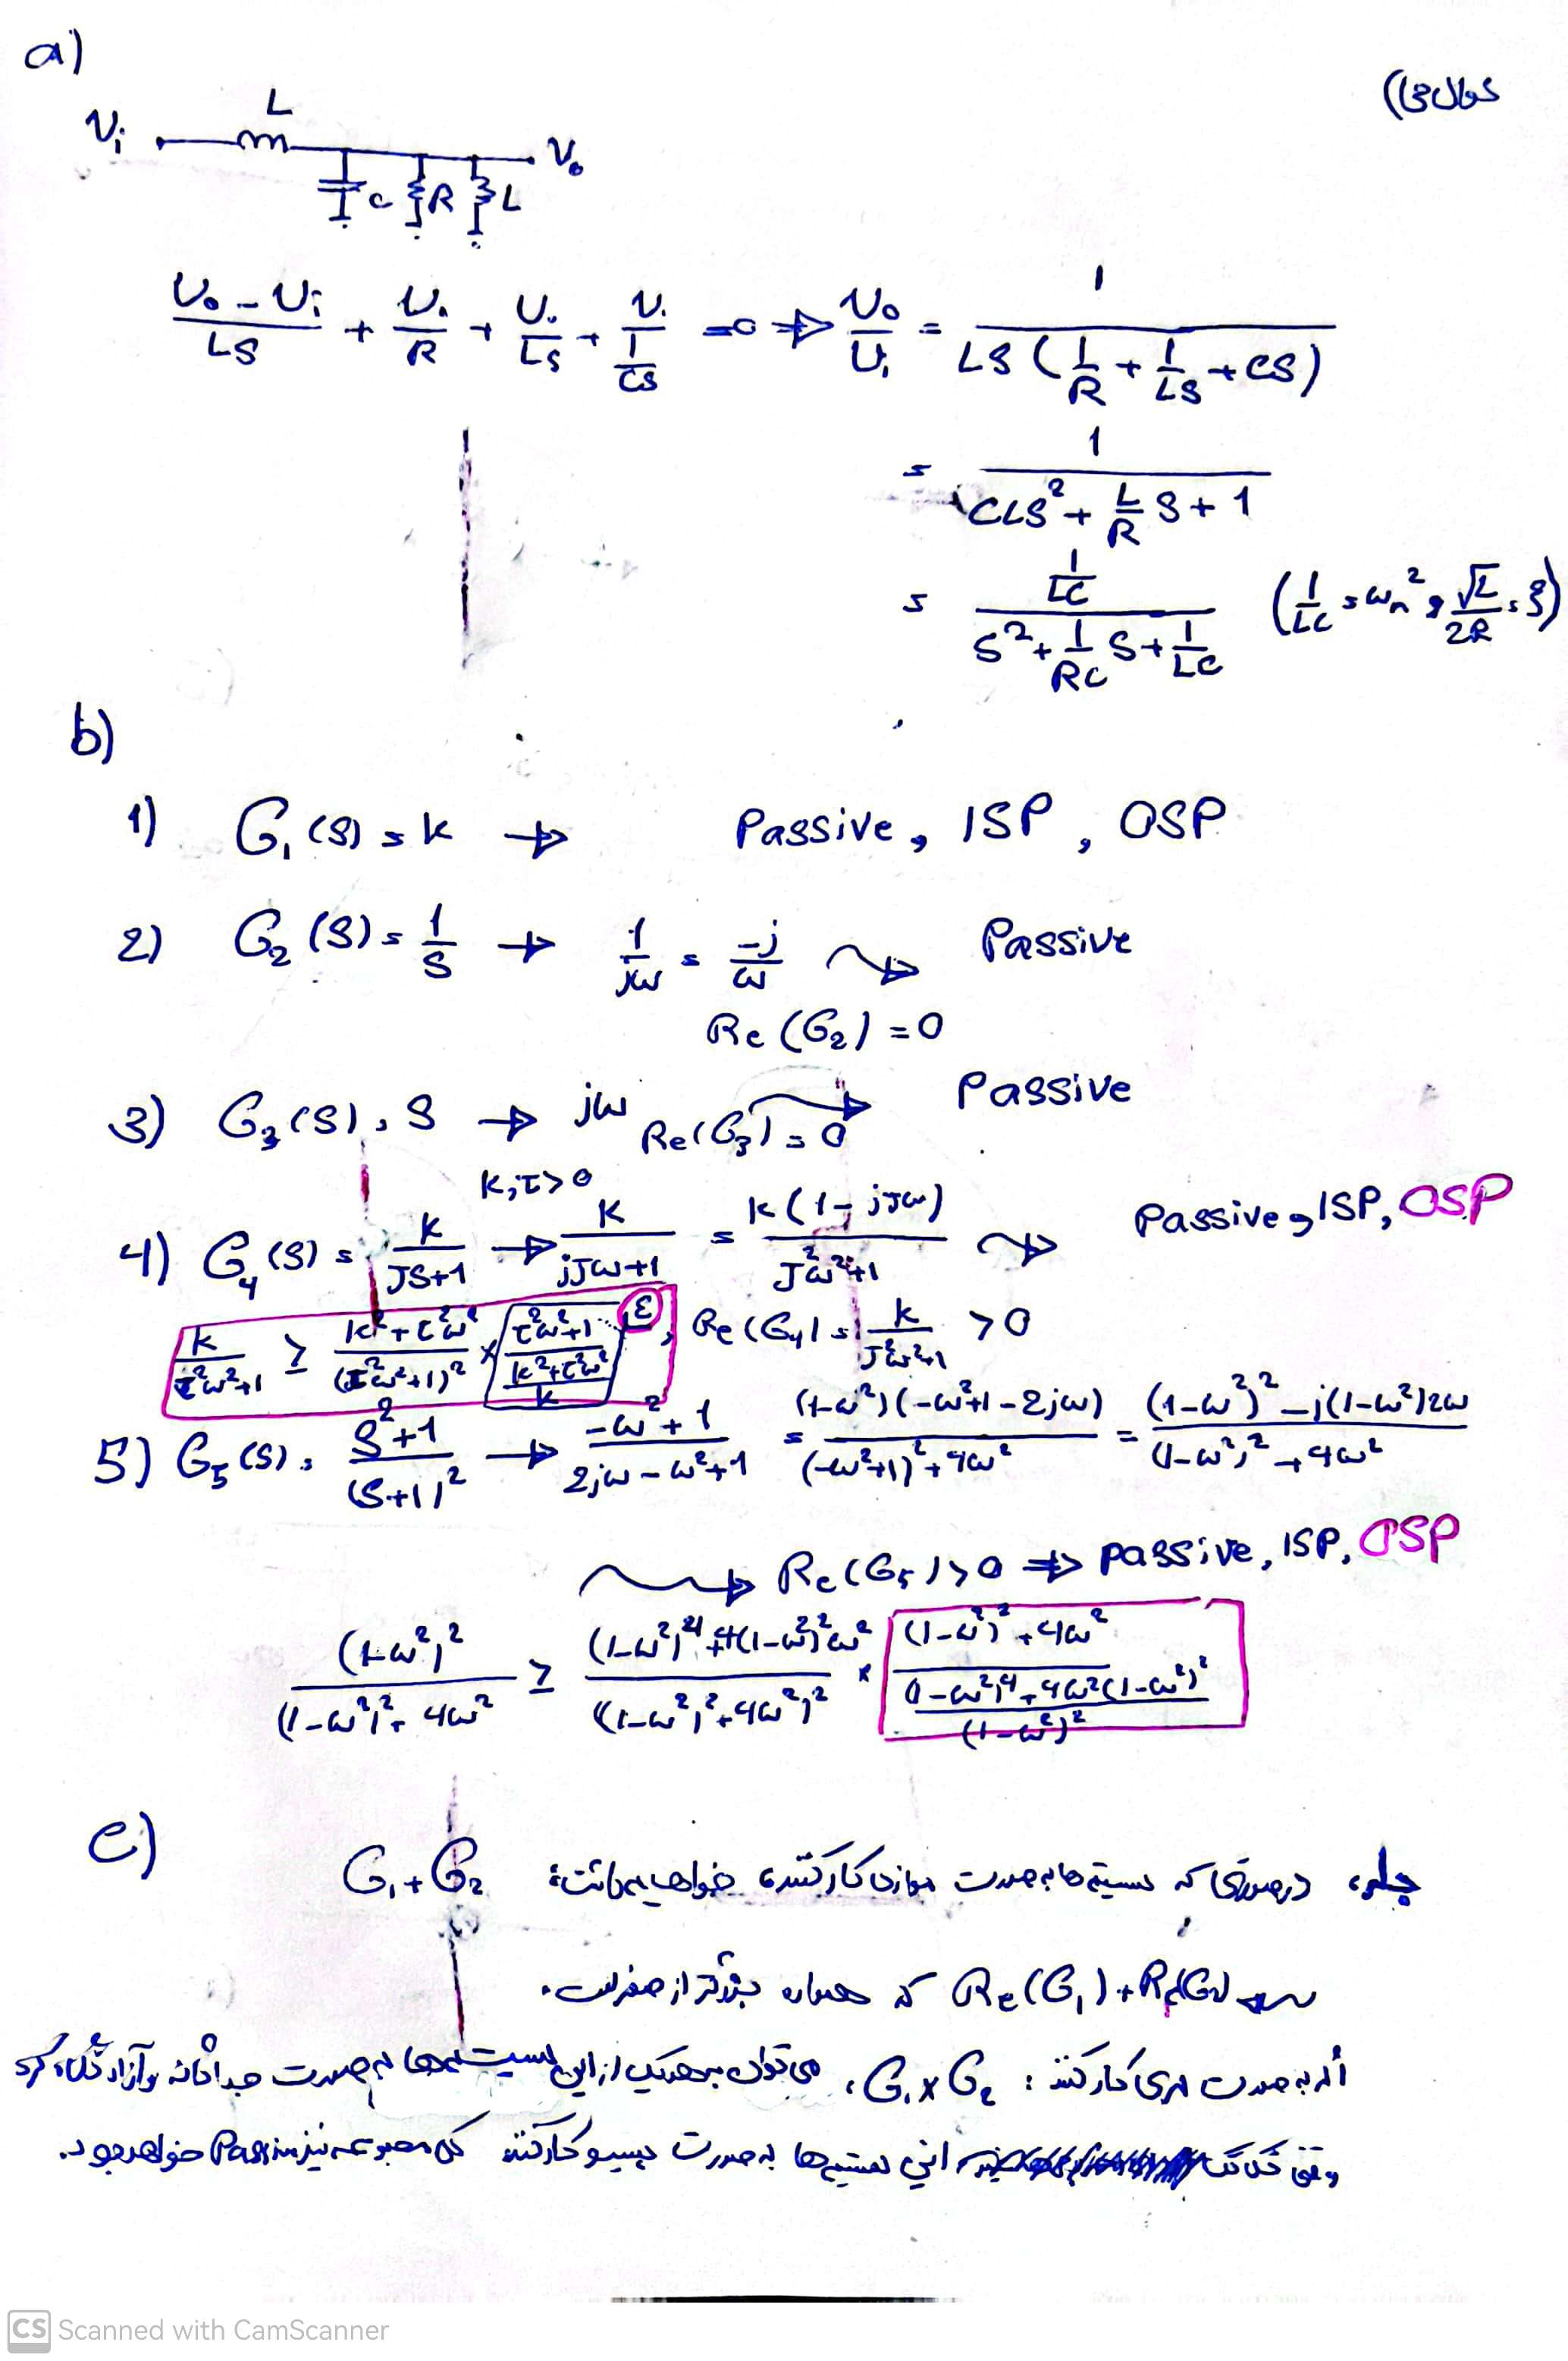 a)
سوال ۳))
Vi L Vo
C R L
(Vo - Vi)/LS + Vo/R + Vo/LS + Vo/(1/CS) = 0 ⇒ Vo/Vi = 1/(LS(1/R + 1/LS + CS))
= 1/(CLS² + L/R S + 1)
= (1/LC)/(S² + 1/RC S + 1/LC) (1/LC = ωn², √L/2R = ξ)
b)
1) G₁(S) = k → Passive, ISP, OSP
2) G₂(S) = 1/S → 1/jω = -j/ω ⇝ Passive
Re(G₂) = 0
3) G₃(S) = S → jω Re(G₃) = 0 → Passive
k,τ>0
4) G₄(S) = k/(JS+1) → k/(jJω+1) = k(1-jJω)/(J²ω²+1) ⇝ Passive, ISP, OSP
k/(τ²ω²+1) ≥ (k²+τ²ω²)/(τ²ω²+1)² × (τ²ω²+1)/((k²+τ²ω²)/k) ε, Re(G₄) = k/(J²ω²+1) > 0
5) G₅(S) = (S²+1)/(S+1)² → (-ω²+1)/(2jω-ω²+1) = (1-ω²)(-ω²+1-2jω)/((-ω²+1)²+4ω²) = ((1-ω²)²-j(1-ω²)2ω)/((1-ω²)²+4ω²)
⇝ Re(G₅) > 0 ⇒ passive, ISP, OSP
(1-ω²)²/((1-ω²)²+4ω²) ≥ ((1-ω²)⁴+4(1-ω²)²ω²)/((1-ω²)²+4ω²)² × ((1-ω²)²+4ω²)/(((1-ω²)⁴+4ω²(1-ω²)²)/(1-ω²)²)
c)
در صورتی که سیستم ها به صورت موازی کار کنند، خواهیم داشت: G₁+G₂
Re(G₁)+Re(G₂) که همواره بزرگتر از صفر است.
اگر به صورت سری کار کنند: G₁×G₂، می توان به هر یک از این سیستم ها به صورت جداگانه و آزاد نگاه کرد
وقتی تک تک این سیستم ها به صورت پسیو کار کنند کل مجموعه نیز Passive خواهد بود.
CS Scanned with CamScanner